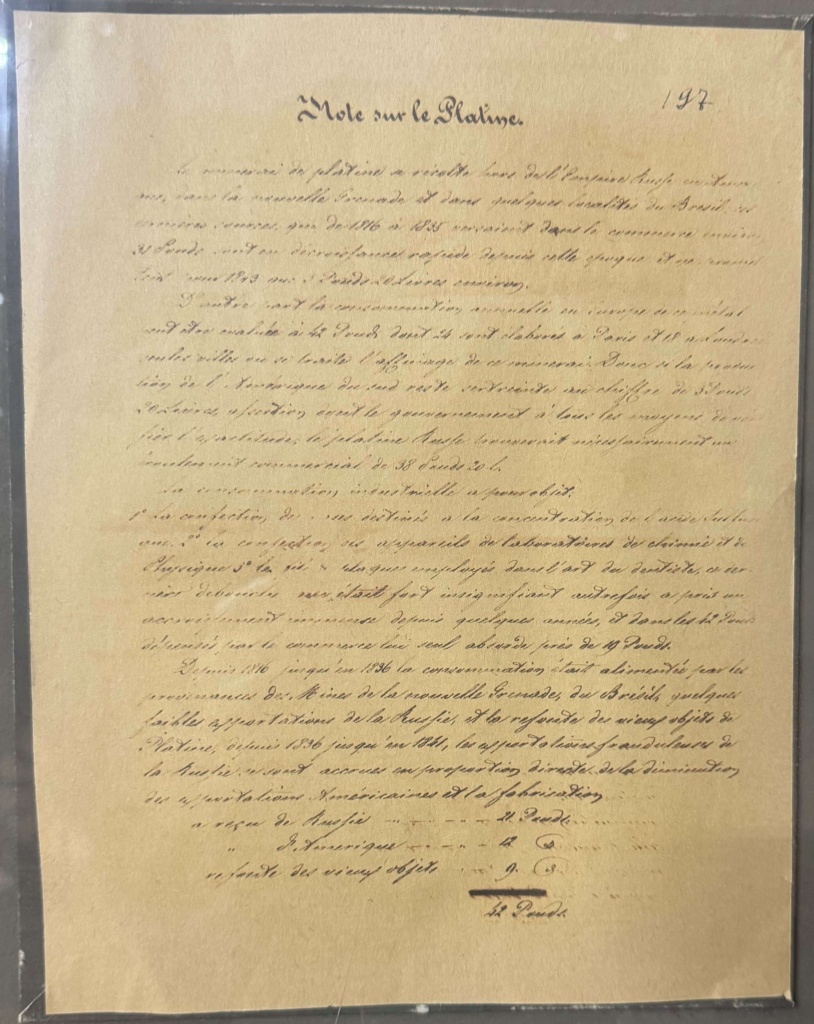 197
Note sur le Platine.
Le minerai de platine a récolte hors de l'Empire Russe
dans la nouvelle Grenade et dans quelques localités du Bresil,
dernières sources, qui de 1816 à 1835 versaient dans le commerce environ
38 Pouds sont en décroissance rapide depuis cette époque et
pour 1843 aux 3 Pouds 20 Livres environ.
D'autre part la consommation annuelle en Europe de ce métal
peut être évaluée à 42 Pouds dont 24 sont élaborés à Paris et 18 a Londres
seules villes où se traite l'affinage de ce minerai. Donc si la
tion de l'Amerique du sud reste restreinte au chiffre de 3 Pouds
20 Livres, assertion dont le gouvernement à tous les moyens de
l'exactitude, le platine Russe trouverait nécessairement un
écoulement commercial de 38 Pouds 20 L.
La consommation industrielle a pour objet.
1° La confection de destinés a la concentration de l'acide
2° La confection des appareils de laboratoires de chimie et de
Physique 3° Les plaques employés dans l'art du dentiste, ce der-
nier débouché était fort insignifiant autrefois a pris un
accroissement immense depuis quelques années, et dans les 42 Pouds
dépensés par le commerce lui seul absorbe près de 19 Pouds.
Depuis 1816 jusqu'en 1836 la consommation était alimentée par les
provenances des Mines de la nouvelle Grenade, du Brésil, quelques
faibles exportations de la Russie, et la refonte des vieux objets de
Platine, depuis 1836 jusqu'en 1841, les exportations frauduleuses de
la Russie se sont accrues en proportion directe de la diminution
des exportations Américaines et la fabrication
a reçu de Russie 21 Pouds.
" d'Amerique 12
refonte des vieux objets 9.
42 Pouds.